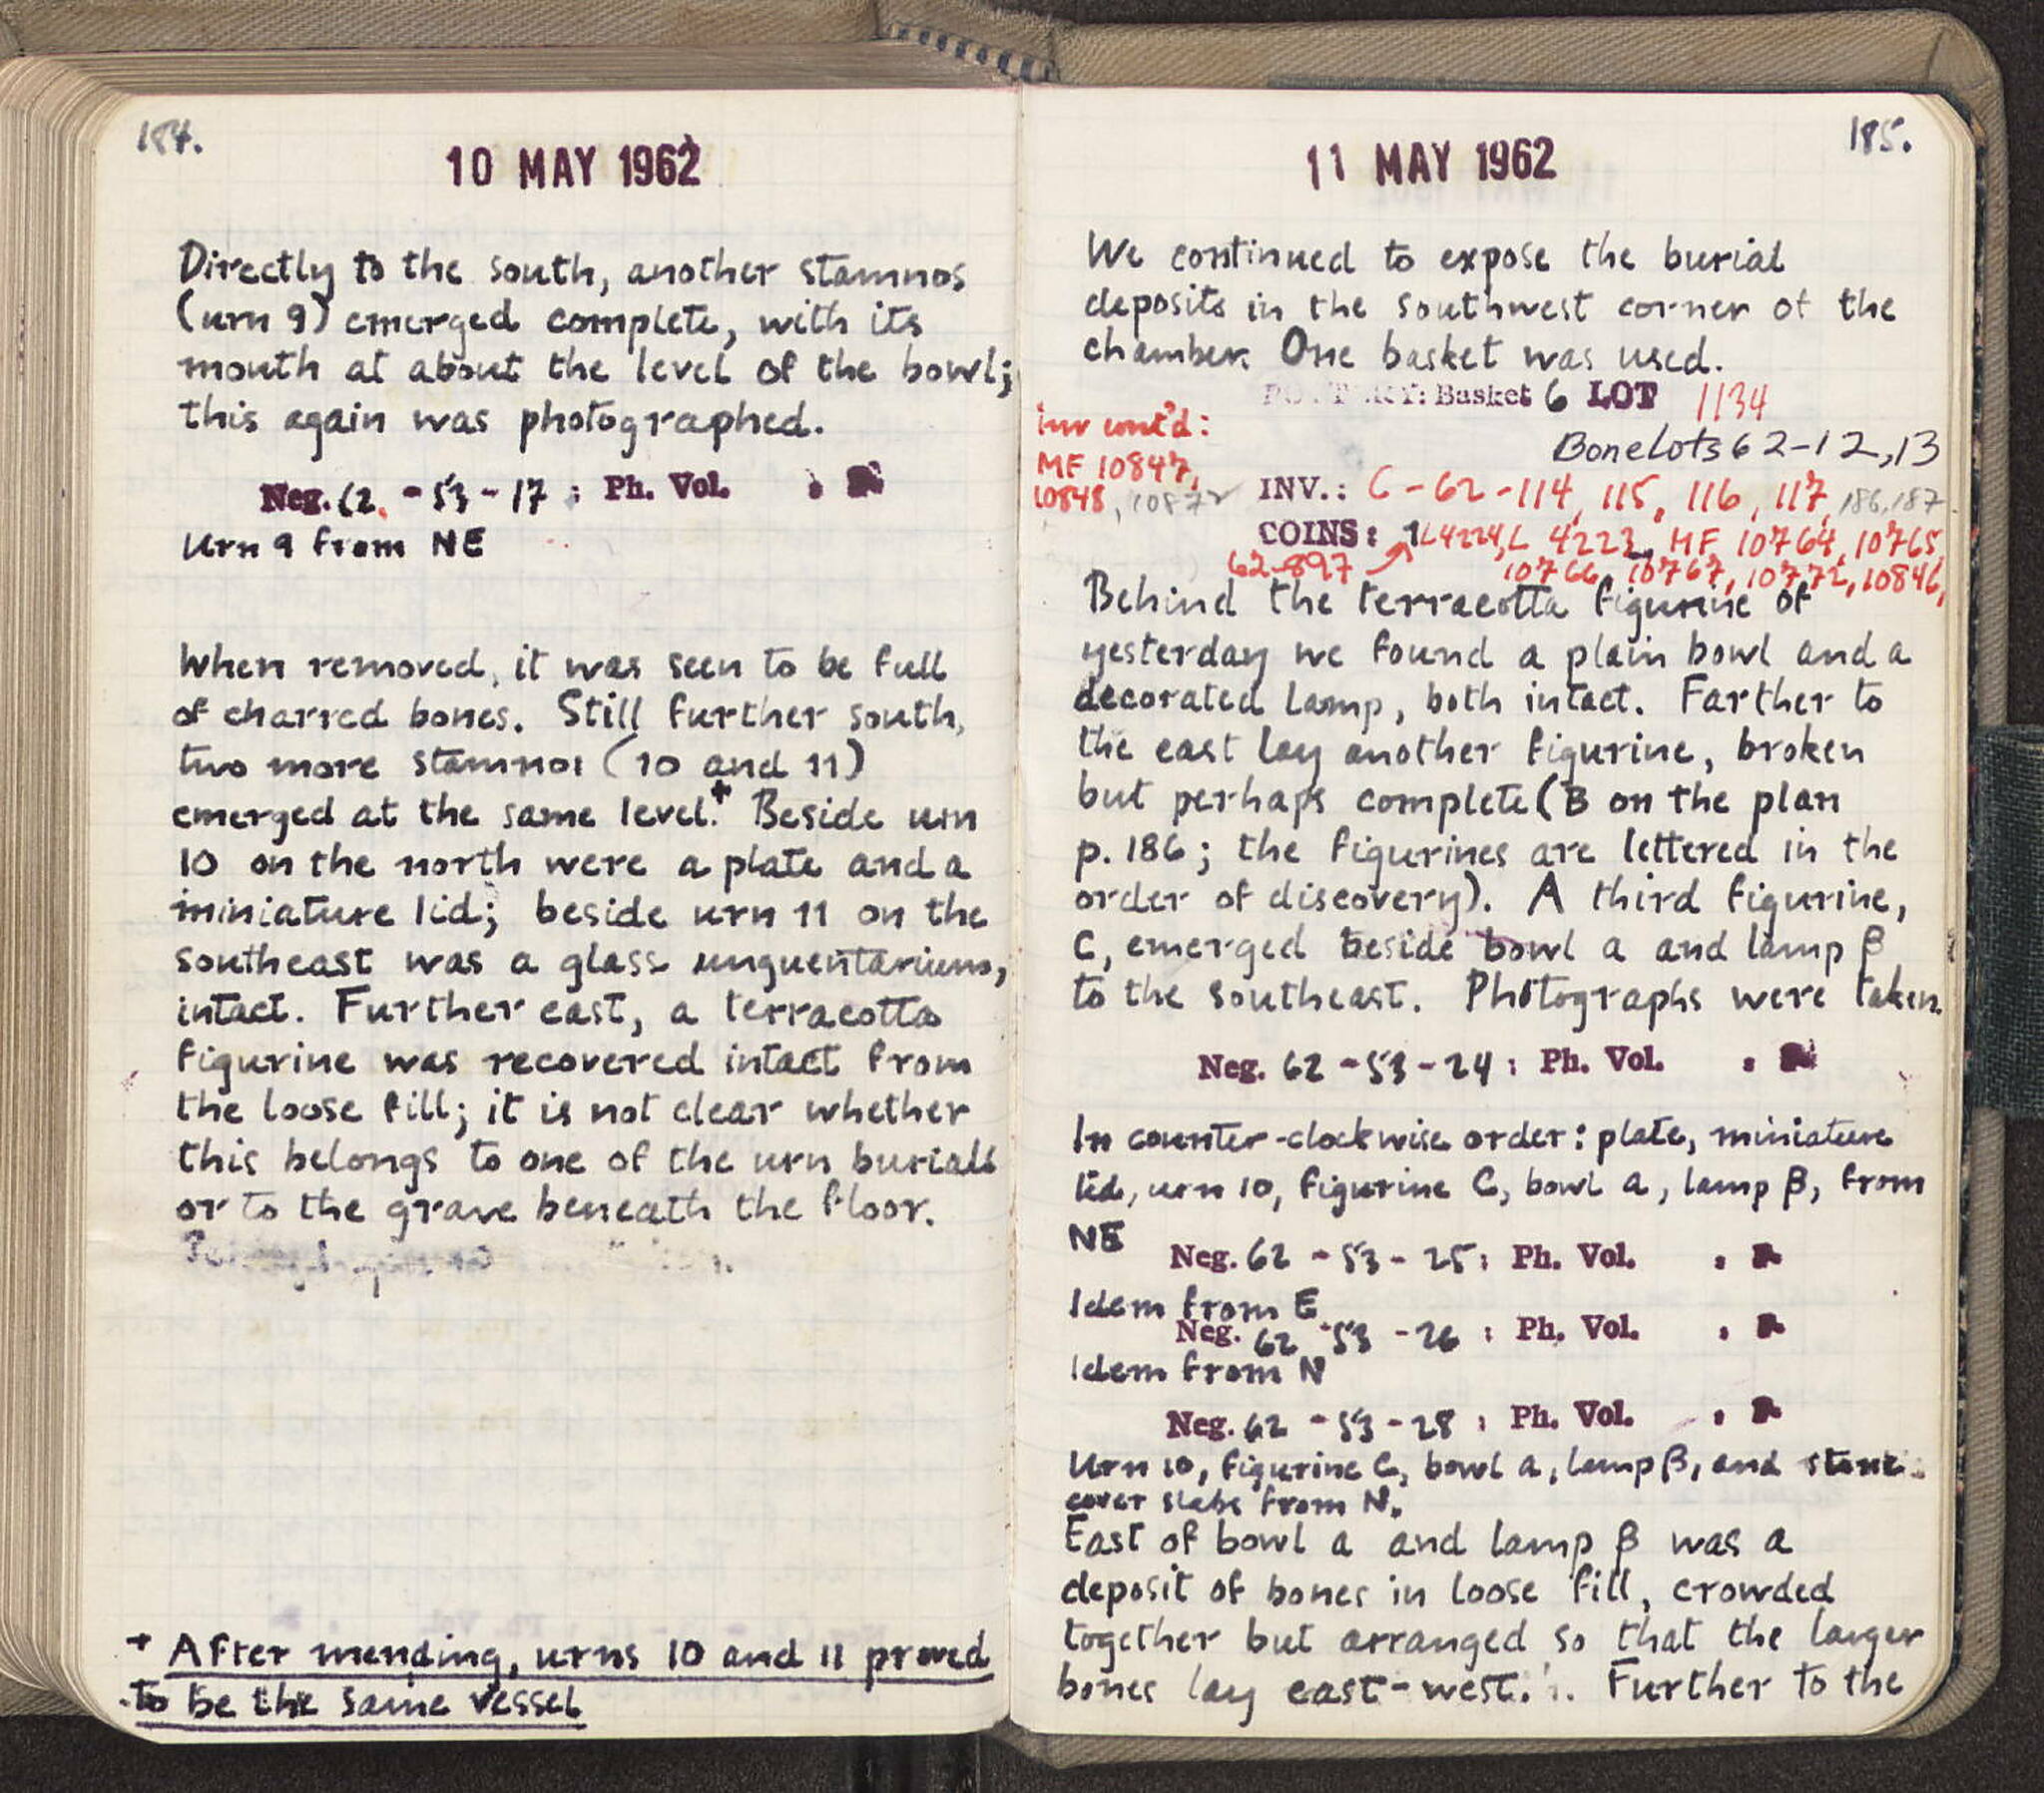 184.
10 MAY 1962
Directly to the south, another stamnos
(urn 9) emerged complete, with its
mouth at about the level of the bowl;
this again was photographed.
Neg. 62 - 53 - 17 ; Ph. Vol.
Urn 9 from NE
When removed, it was seen to be full
of charred bones. Still further south,
two more stamnoi (10 and 11)
emerged at the same level.+ Beside urn
10 on the north were a plate and a
miniature lid; beside urn 11 on the
southeast was a glass unguentarium,
intact. Further east, a terracotta
figurine was recovered intact from
the loose fill; it is not clear whether
this belongs to one of the urn burials
or to the grave beneath the floor.
+ After mending, urns 10 and 11 proved
to be the same vessel
185.
11 MAY 1962
We continued to expose the burial
deposits in the southwest corner of the
chamber. One basket was used.
POTTERY: Basket 6 LOT 1134
Bone Lots 62-12, 13
Inv cont'd:
MF 10847,
10848, 10872
INV.: C - 62 - 114, 115, 116, 117, 186, 187
COINS: 1 L4224, L 4223, MF 10764, 10765,
62-897 10766, 10767, 10772, 10846,
Behind the terracotta figurine of
yesterday we found a plain bowl and a
decorated lamp, both intact. Farther to
the east lay another figurine, broken
but perhaps complete (B on the plan
p. 186; the figurines are lettered in the
order of discovery). A third figurine,
C, emerged beside bowl a and lamp β
to the southeast. Photographs were taken.
Neg. 62 - 53 - 24 : Ph. Vol.
In counter-clockwise order: plate, miniature
lid, urn 10, figurine C, bowl a, lamp β, from
NE
Neg. 62 - 53 - 25 : Ph. Vol.
Idem from E
Neg. 62 - 53 - 26 : Ph. Vol.
Idem from N
Neg. 62 - 53 - 28 : Ph. Vol.
Urn 10, figurine C, bowl a, lamp β, and stone
cover slabs from N.
East of bowl a and lamp β was a
deposit of bones in loose fill, crowded
together but arranged so that the larger
bones lay east-west. Further to the